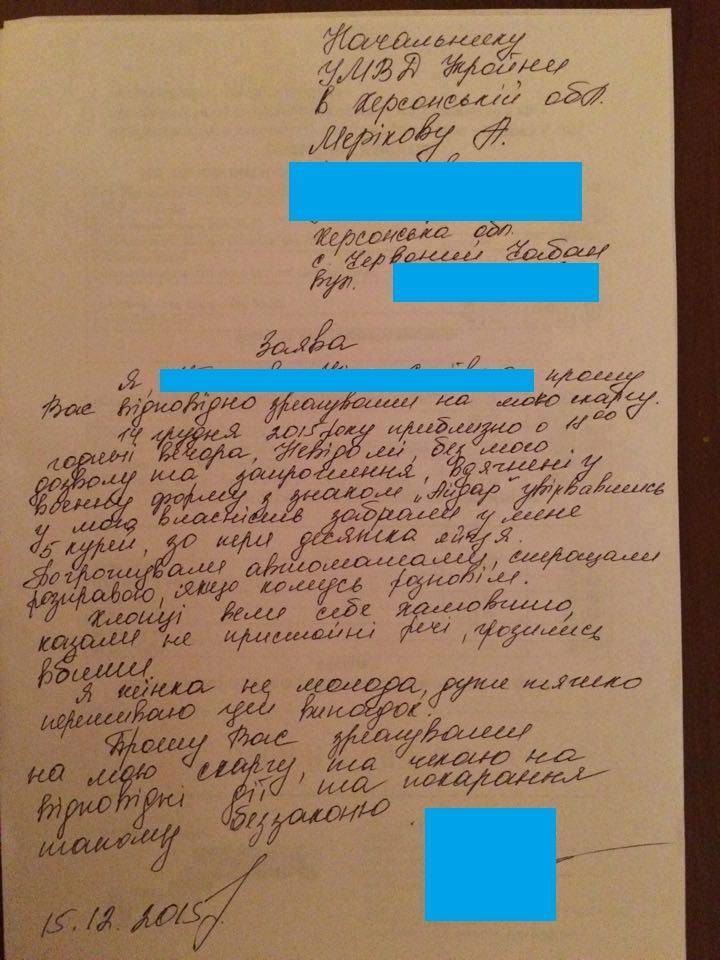 Начальнику
УМВД України
в Херсонській обл.
Мерікову А.
Херсонська обл.
с. Червоний Чабан
вул.
Заява
Я, прошу
Вас відповідно зреагувати на мою скаргу.
14 грудня 2015 року приблизно о 18 00
годині вечора, Невідомі, без мого
дозволу та запрошення, вдягнені у
военну форму з знаком „Айдар" увірвавшись
у мою власність забрали у мене
5 курей, десятка яйця.
Погрожували автоматами, стращали
розправою, якщо комусь розповім.
Хлопці вели себе хамовито,
казали не пристойні речі, грозились
вбити.
Я жінка не молода, дуже тяжко
переживаю цей випадок.
Прошу Вас зреагувати
на мою скаргу, та чекаю на
відповідні дії та покарання
такому беззаконю.
15.12.2015